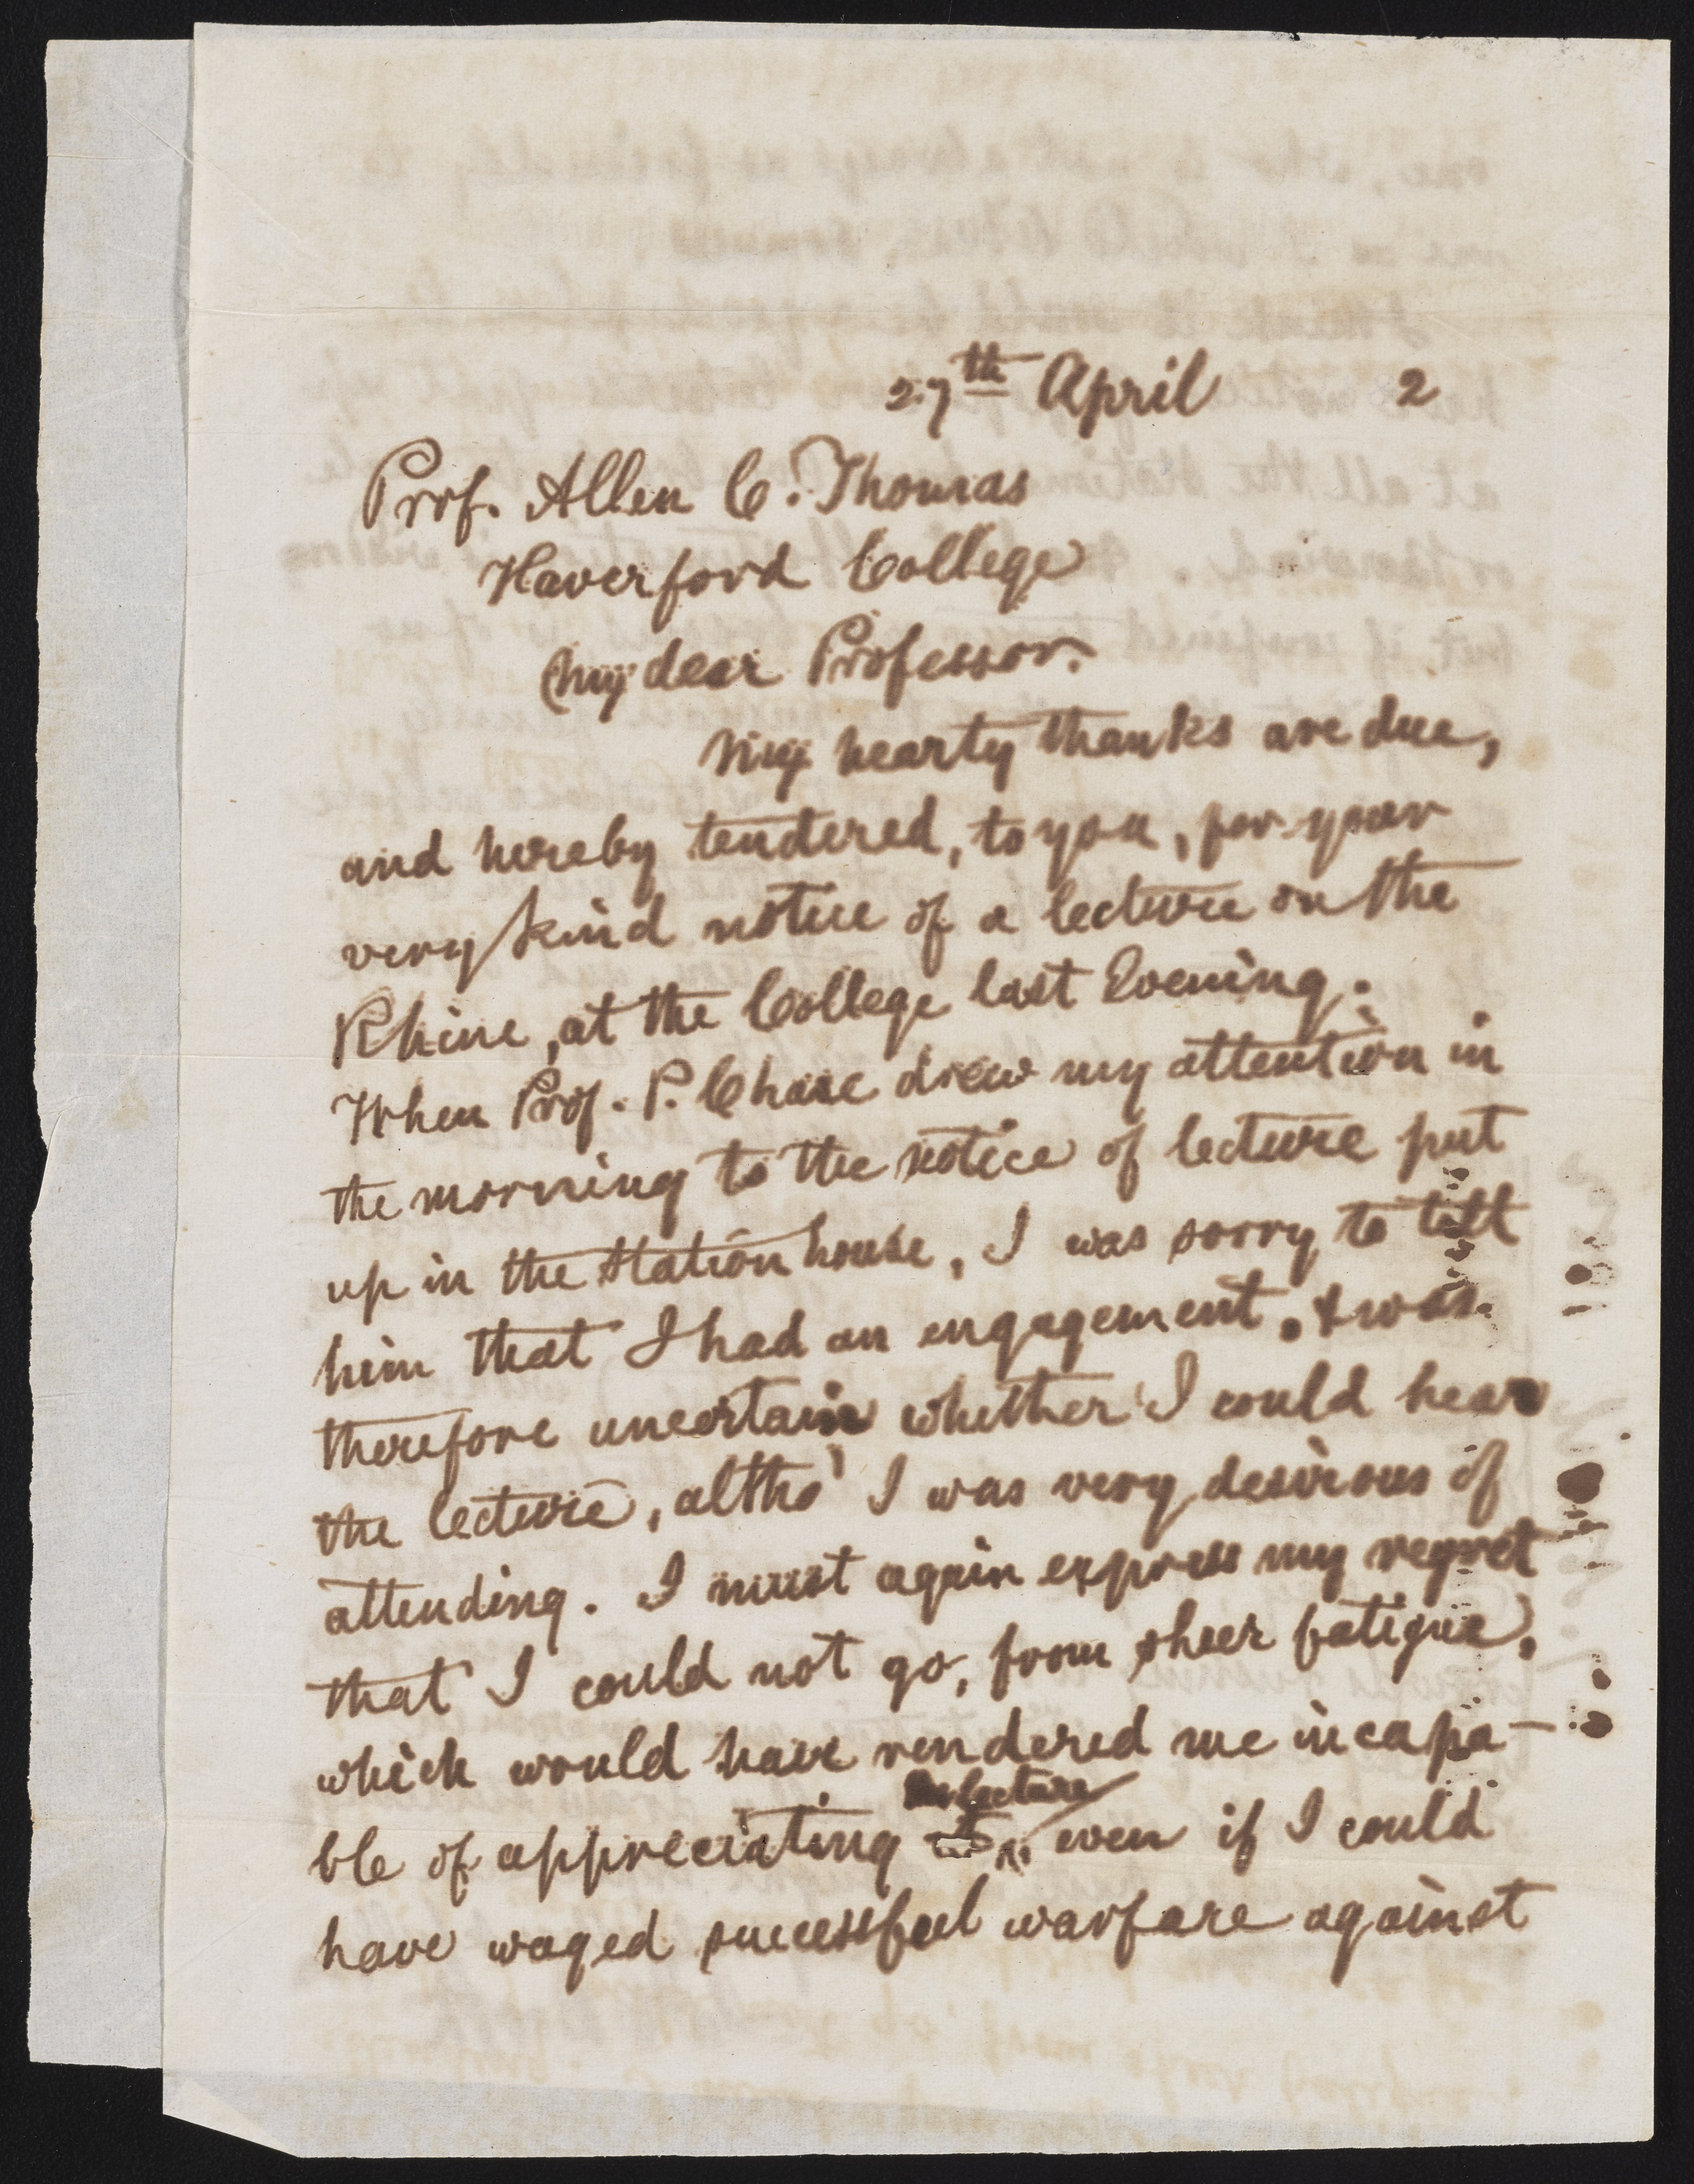 27th April 2
Prof. Allen C. Thomas
Haverford College
My dear Professor.
My hearty thanks are due,
and hereby tendered, to you, for your
very kind notice of a lecture on the
Rhine, at the College last Evening.
When Prof. P. Chase drew my attention in
the morning to the notice of lecture put
up in the station house, I was sorry to tell
him that I had an engagement, & was
therefore uncertain whether I could hear
the lecture, altho' I was very desirous of
attending. I must again express my regret
that I could not go, from sheer fatigue,
which would have rendered me incapa-
lecture
ble of appreciating it, even if I could
have waged successful warfare against